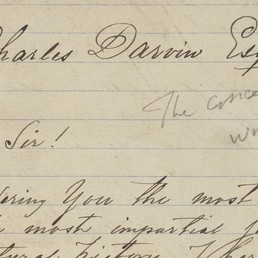 Charles Darwin Esq
The conce
Sir!
ering You the most
most impartial
tural history